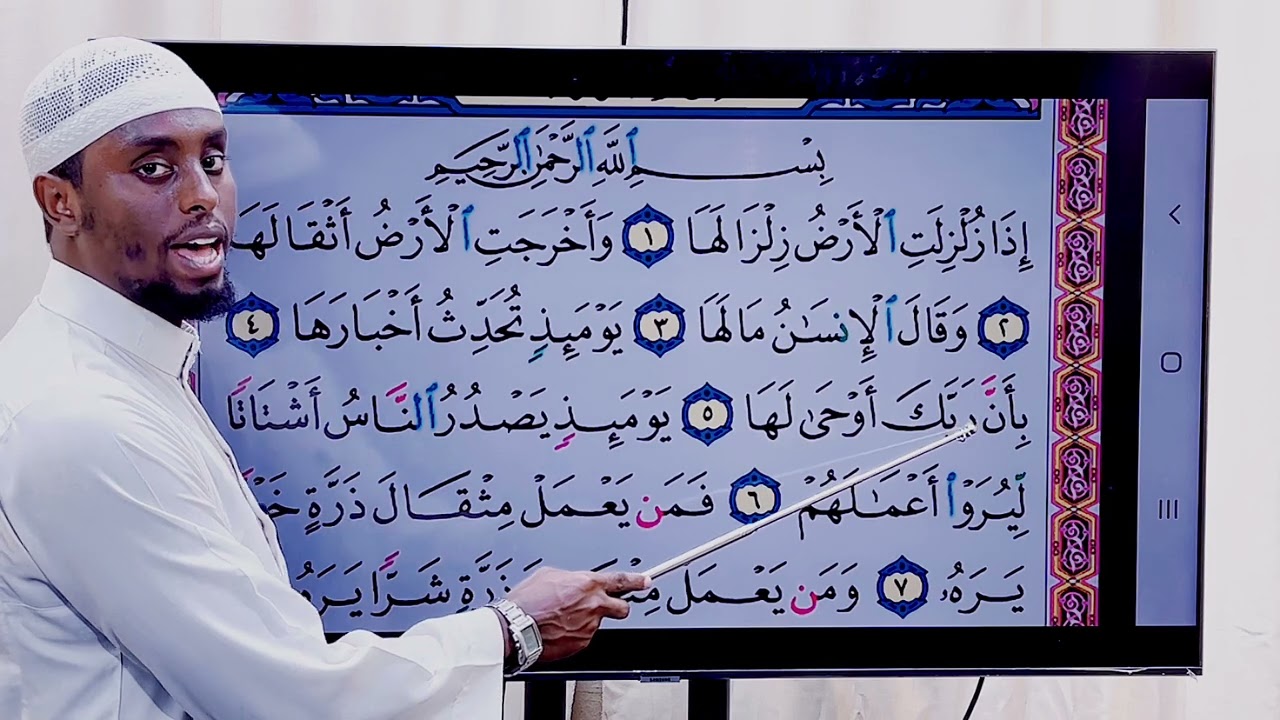 بِسْمِ ٱللَّهِ ٱلرَّحْمَٰنِ ٱلرَّحِيمِ
إِذَا زُلْزِلَتِ ٱلْأَرْضُ زِلْزَالَهَا ١ وَأَخْرَجَتِ ٱلْأَرْضُ أَثْقَالَهَا
٢ وَقَالَ ٱلْإِنسَٰنُ مَا لَهَا ٣ يَوْمَئِذٍ تُحَدِّثُ أَخْبَارَهَا ٤
بِأَنَّ رَبَّكَ أَوْحَىٰ لَهَا ٥ يَوْمَئِذٍ يَصْدُرُ ٱلنَّاسُ أَشْتَاتًا
لِّيُرَوْا۟ أَعْمَٰلَهُمْ ٦ فَمَن يَعْمَلْ مِثْقَالَ ذَرَّةٍ
يَرَهُۥ ٧ وَمَن يَعْمَلْ ذَرَّةٍ شَرًّا يَرَهُ